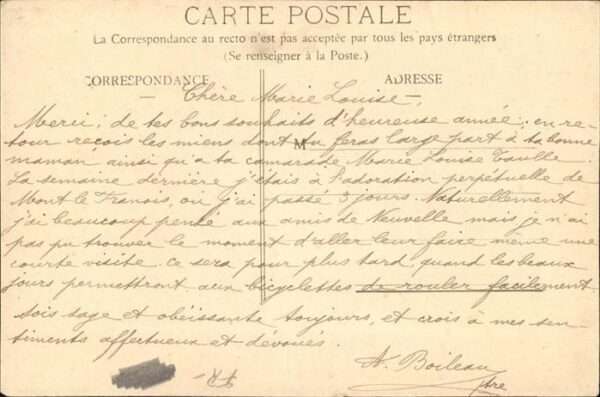 CARTE POSTALE
La Correspondance au recto n'est pas acceptée par tous les pays étrangers
(Se renseigner à la Poste.)
CORRESPONDANCE
ADRESSE
Chère Marie Louise,
M
Merci, de tes bons souhaits d'heureuse année; en re-
tour reçois les miens dont tu feras large part à ta bonne
maman ainsi qu'a ta camarade Marie Louise
La semaine dernière j'étais à l'adoration perpétuelle de
Mont le Franois, où j'ai passé 3 jours. Naturellement
j'ai beaucoup pensé aux amis de Nauvelle mais je n'ai
pas pu trouver le moment d'aller leur faire même une
courte visite. Ce sera pour plus tard, quand les beaux
jours permettront aux bicyclettes de rouler facilement
sois sage et obéissante toujours, et crois à mes sen-
timents affectueux et dévoués.
A. Boileau
ptre